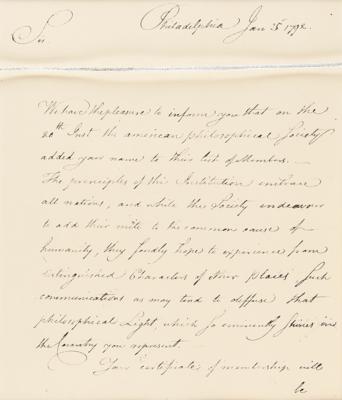 Philadelphia Jan 25 1792.
Sir.
We have the pleasure to inform you that on the
20th Inst the american philosophical Society
added your name to their list of Members. —
The principles of this Institution embrace
all nations, and while the Society endeavour
to add their mite to the common cause of
humanity, they fondly hope to experience from
distinguished Characters of Your places Such
communications as may tend to diffuse that
philosophical Light, which so eminently shines in
the Country you represent.
Your certificate of membership will
be